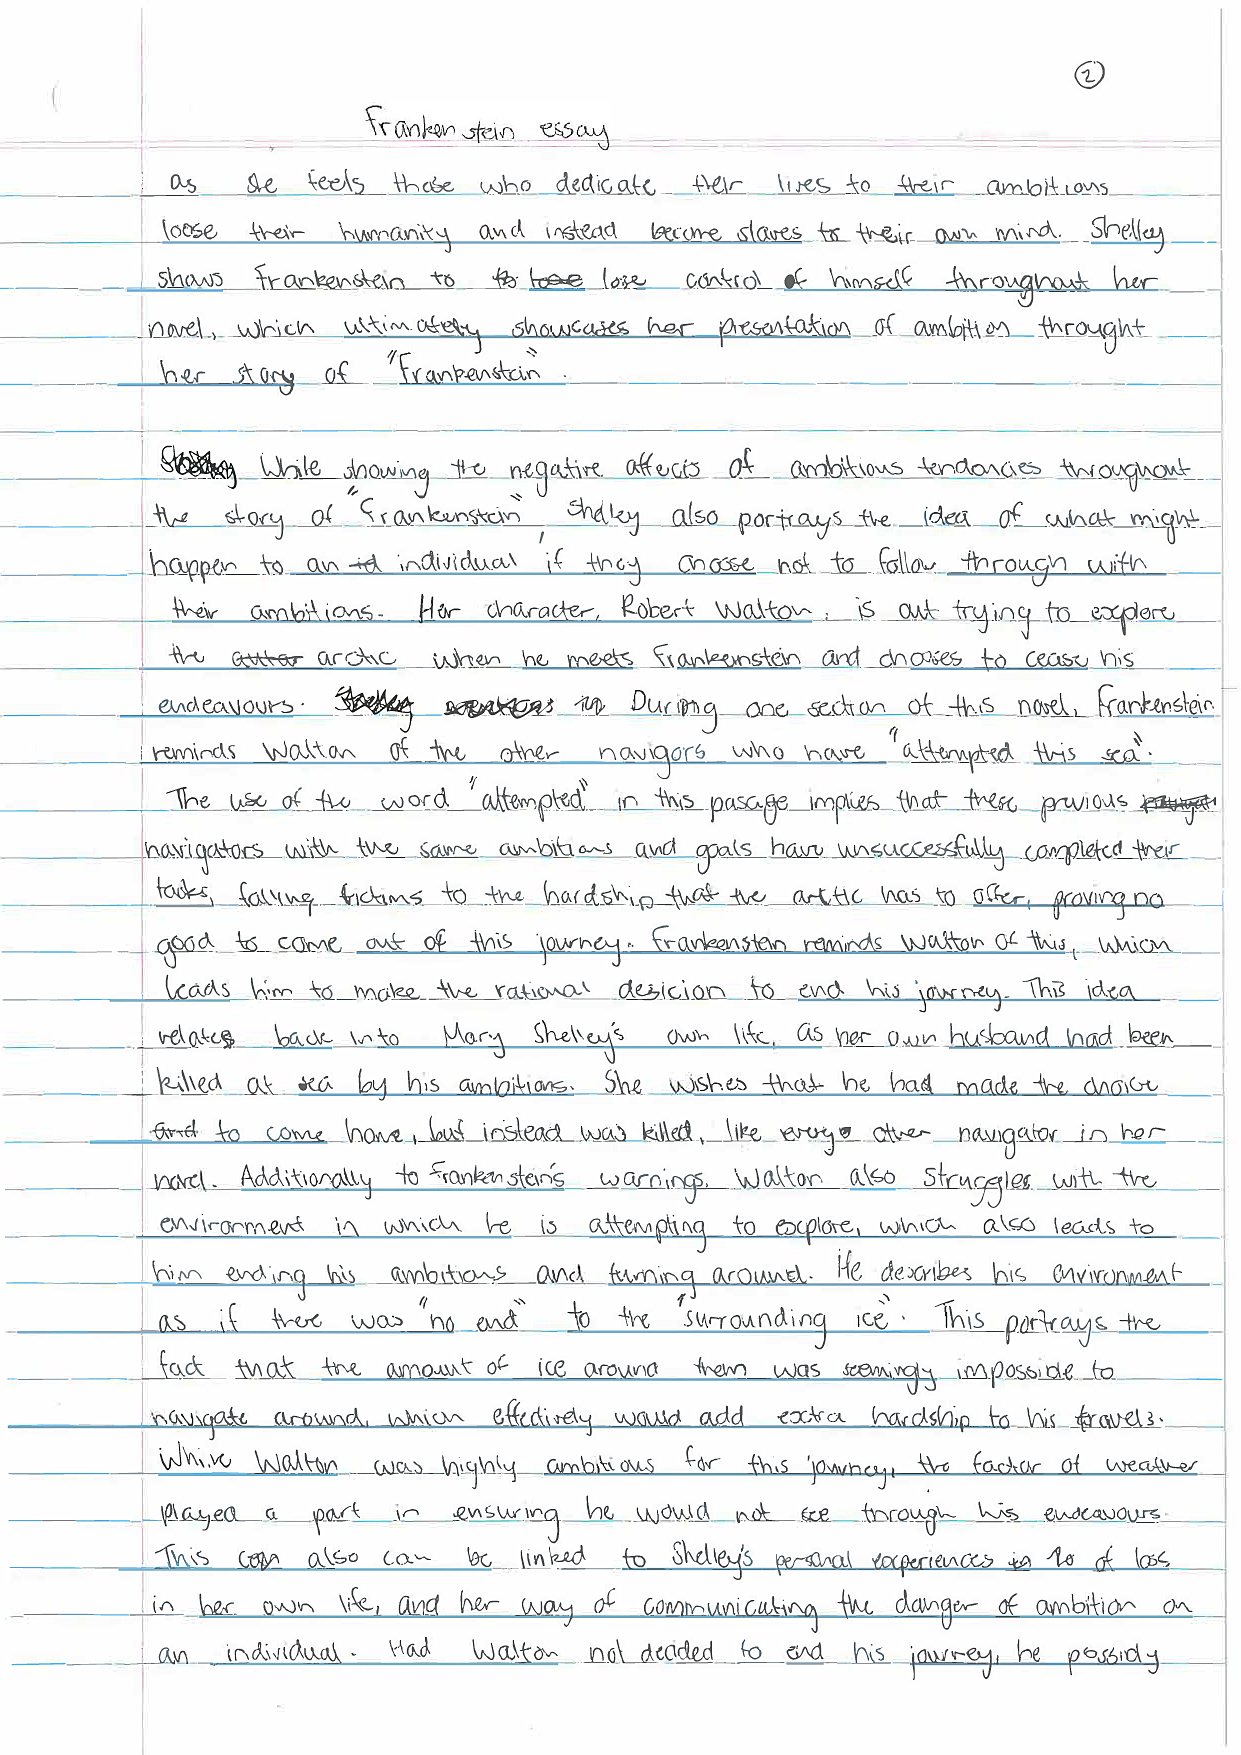 2
Frankenstein essay
as she feels those who dedicate their lives to their ambitions
loose their humanity and instead become slaves to their own mind. Shelley
shows Frankenstein to to lose lose control of himself throughout her
novel, which ultimately showcases her presentation of ambition throught
her story of "Frankenstein".
While showing the negative affects of ambitious tendancies throughout
the story of "Frankenstein", Shelley also portrays the idea of what might
happen to an id individual, if they choose not to follow through with
their ambitions. Her character, Robert Walton, is out trying to explore
the arctic when he meets Frankeinstein and chooses to cease his
endeavours. in During one section of this novel, Frankenstein
reminds Walton of the other navigors who have "attempted this sea".
The use of the word "attempted" in this pasage implies that these previous
navigators with the same ambitions and goals have unsuccessfully completed their
tasks, falling victims to the hardship that the arctic has to offer, proving no
good to come out of this journey. Frankenstein reminds Walton of this, which
leads him to make the rational desicion to end his journey. This idea
relates back into Mary Shelley's own life, as her own husband had been
killed at sea by his ambitions. She wishes that he had made the choice
and to come home, but instead was killed, like every other navigator in her
novel. Additionally to Frankenstein's warnings, Walton also struggles with the
environment in which he is attempting to explore, which also leads to
him ending his ambitions and turning around. He describes his environment
as if there was "no end" to the "surrounding ice". This portrays the
fact that the amount of ice around them was seemingly impossible to
navigate around, which effectively would add extra hardship to his travels.
While Walton was highly ambitious for this journey, the factor of weather
played a part in ensuring he would not see through his endeavours.
This can also can be linked to Shelley's personal experiences in to of loss
in her own life, and her way of communicating the danger of ambition on
an individual. Had Walton not decided to end his journey, he possibly